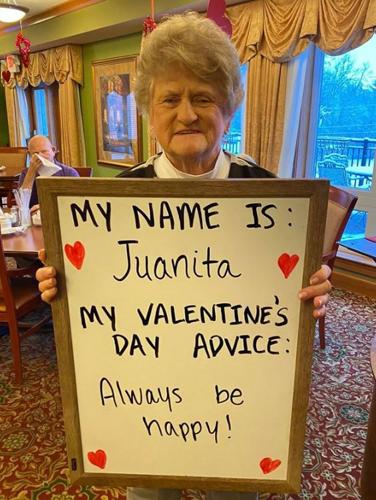 MY NAME IS:
Juanita
MY VALENTINE'S
DAY ADVICE:
Always be
happy!